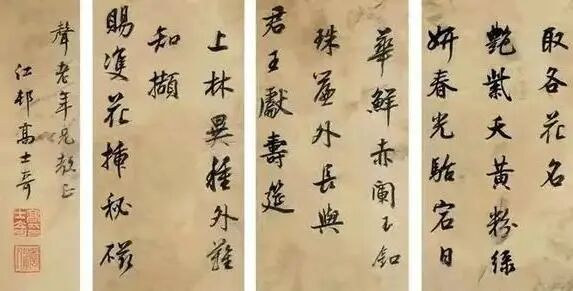 取各花名
艷紫夭黃粉綠
妍春光駘宕日
華鮮赤闌玉釦
珠簾外長與
君王獻壽筵
上林異種外難
知擷
賜雙花插秘磁
聲老年兄教正
江邨高士奇